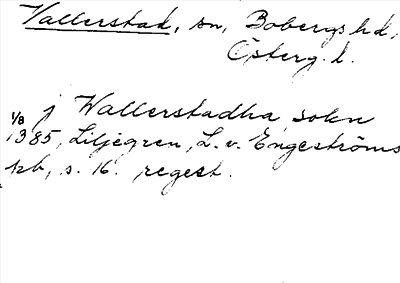 Vallerstad, sn, Bobergs hd,
Österg. l.
j Wallerstadha sokn
1/8 1385, Liljegren, L. v. Engeströms
kb, s. 16. regest.